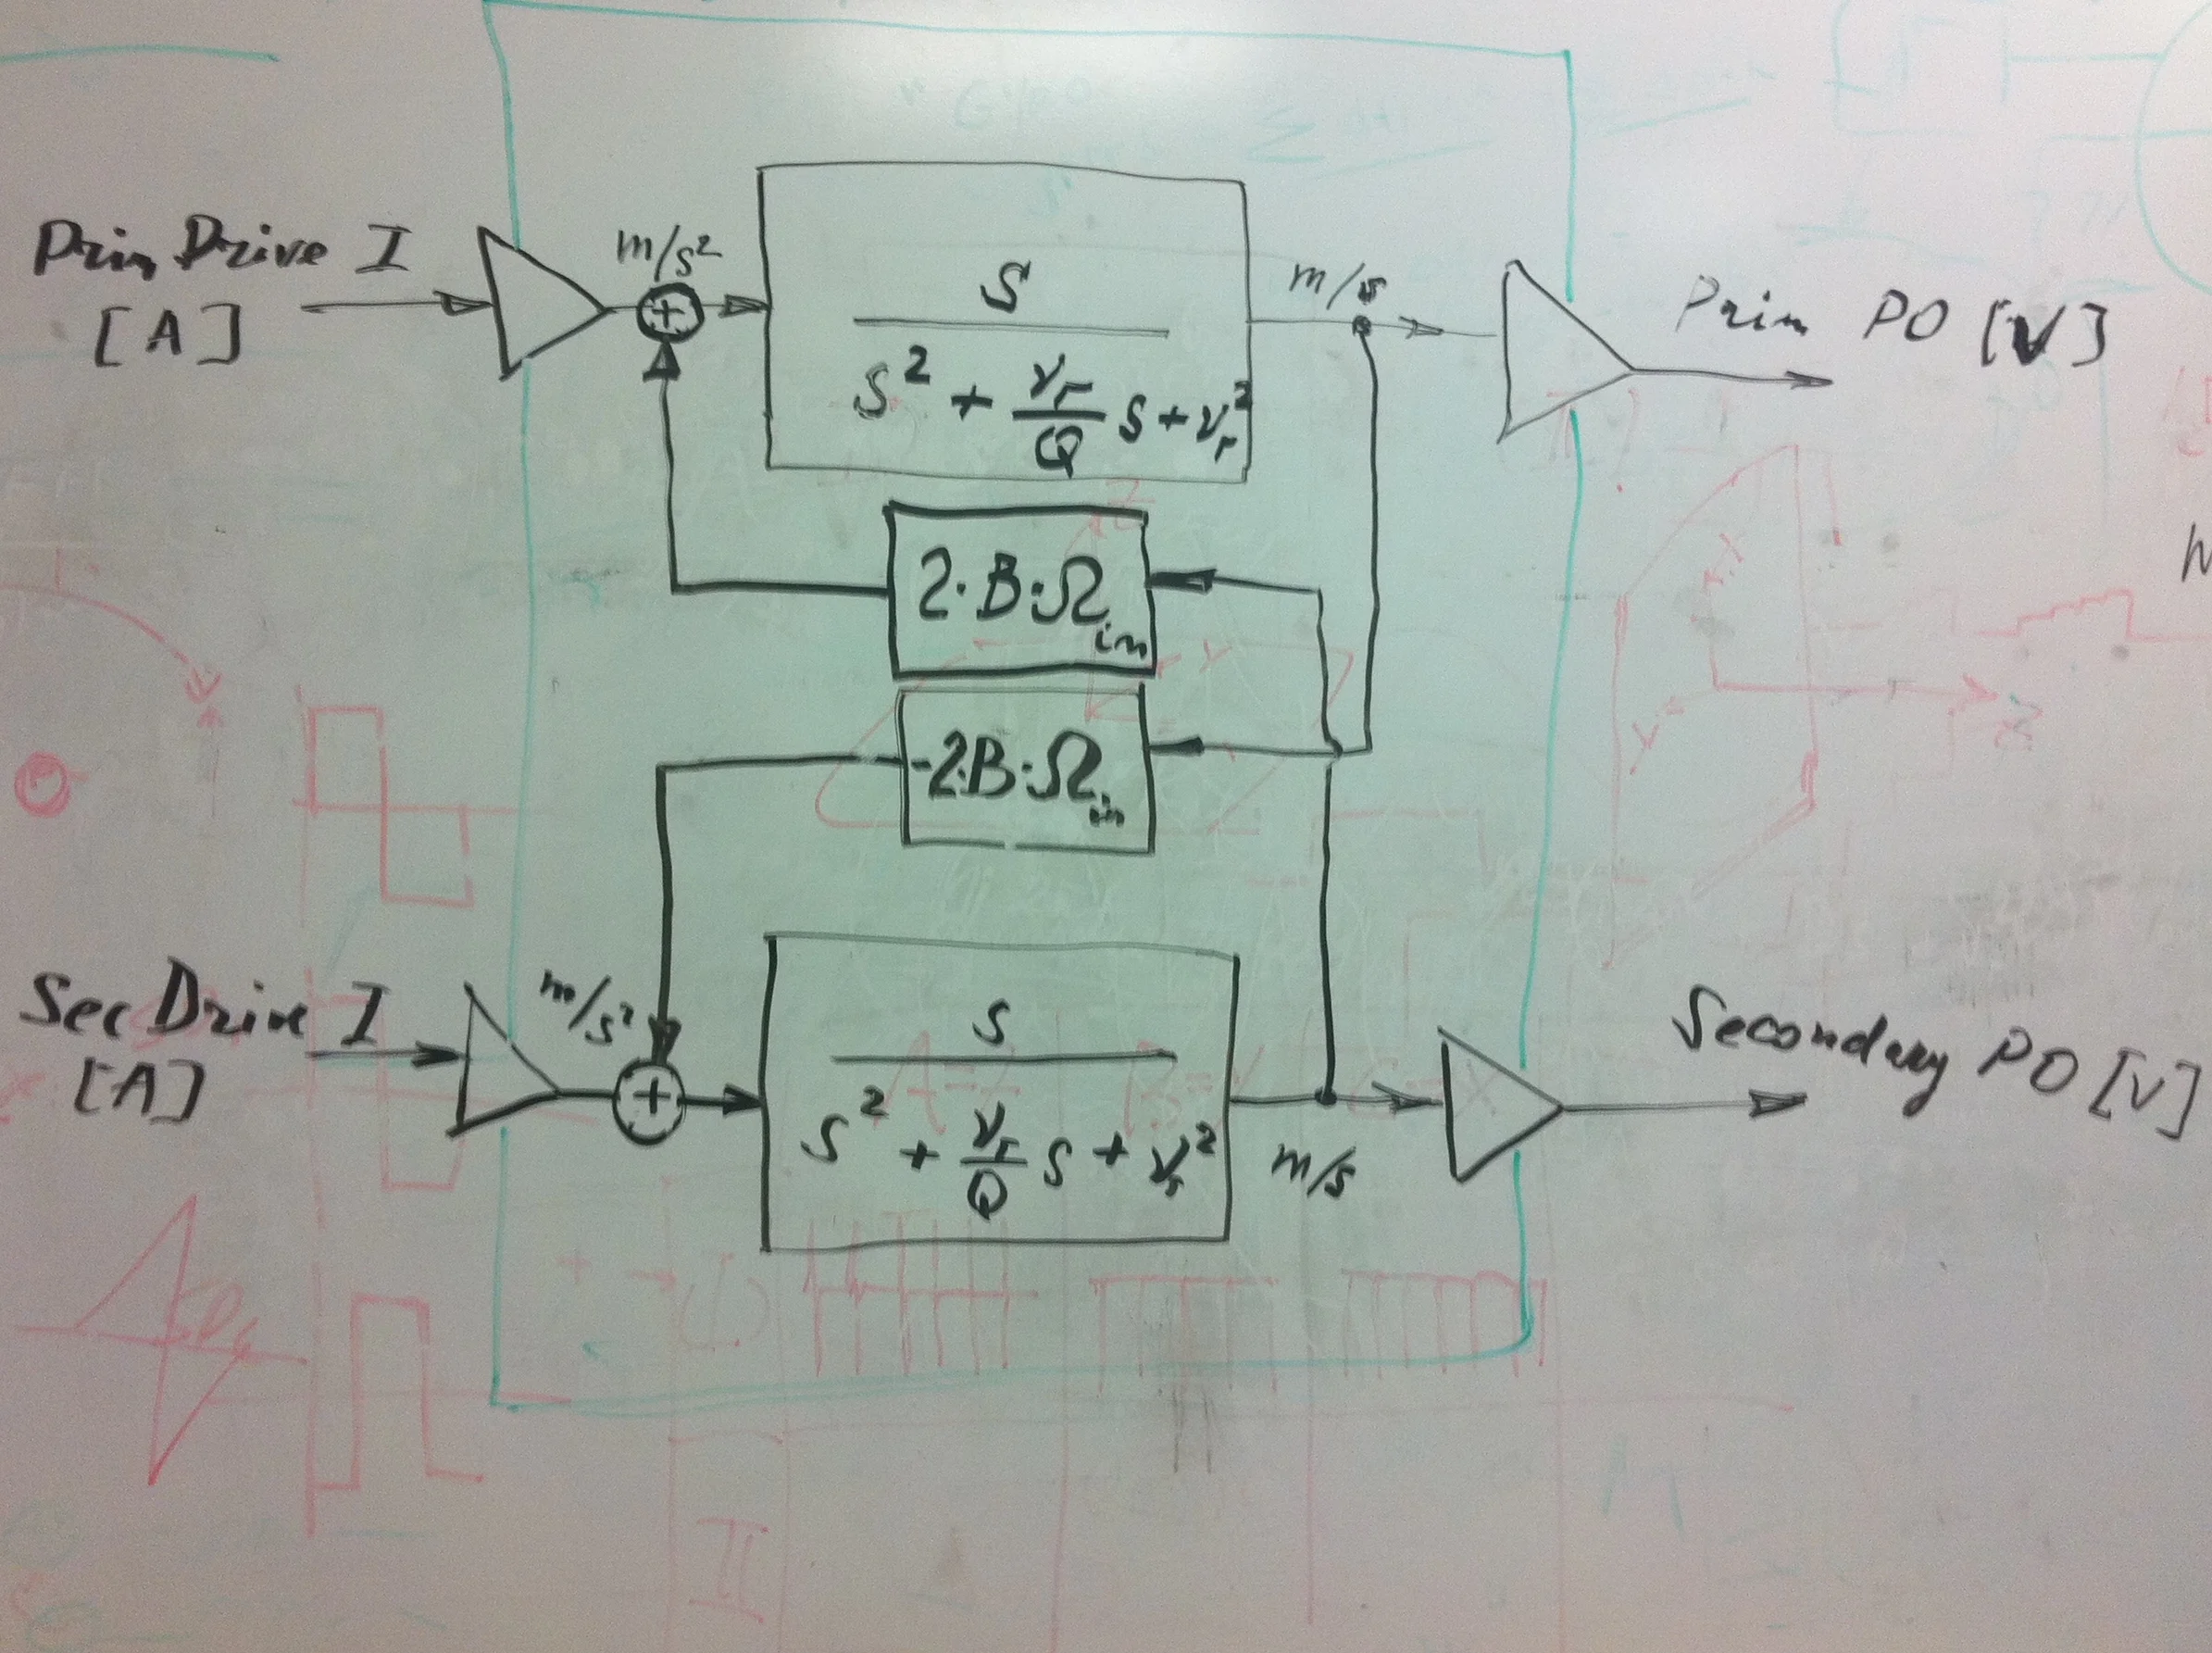 Prim Drive I
[A]
m/s²
+
S
S² + νr/Q S + νr²
m/s
Prim PO [V]
2·B·Ωin
-2·B·Ωin
Sec Drive I
[A]
m/s²
+
S
S² + νr/Q S + νr²
m/s
Secondary PO [V]